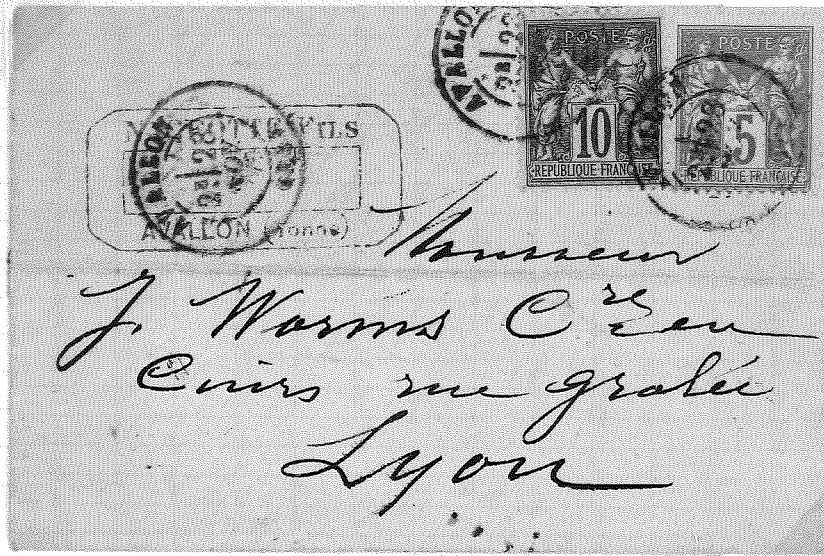 POSTE
10
REPUBLIQUE FRANÇAISE
POSTE
5
REPUBLIQUE FRANÇAISE
AVALLON
AVALLON
FILS
AVALLON (Yonne)
Monsieur
J. Worms Cre en
Cuirs rue grolée
Lyon